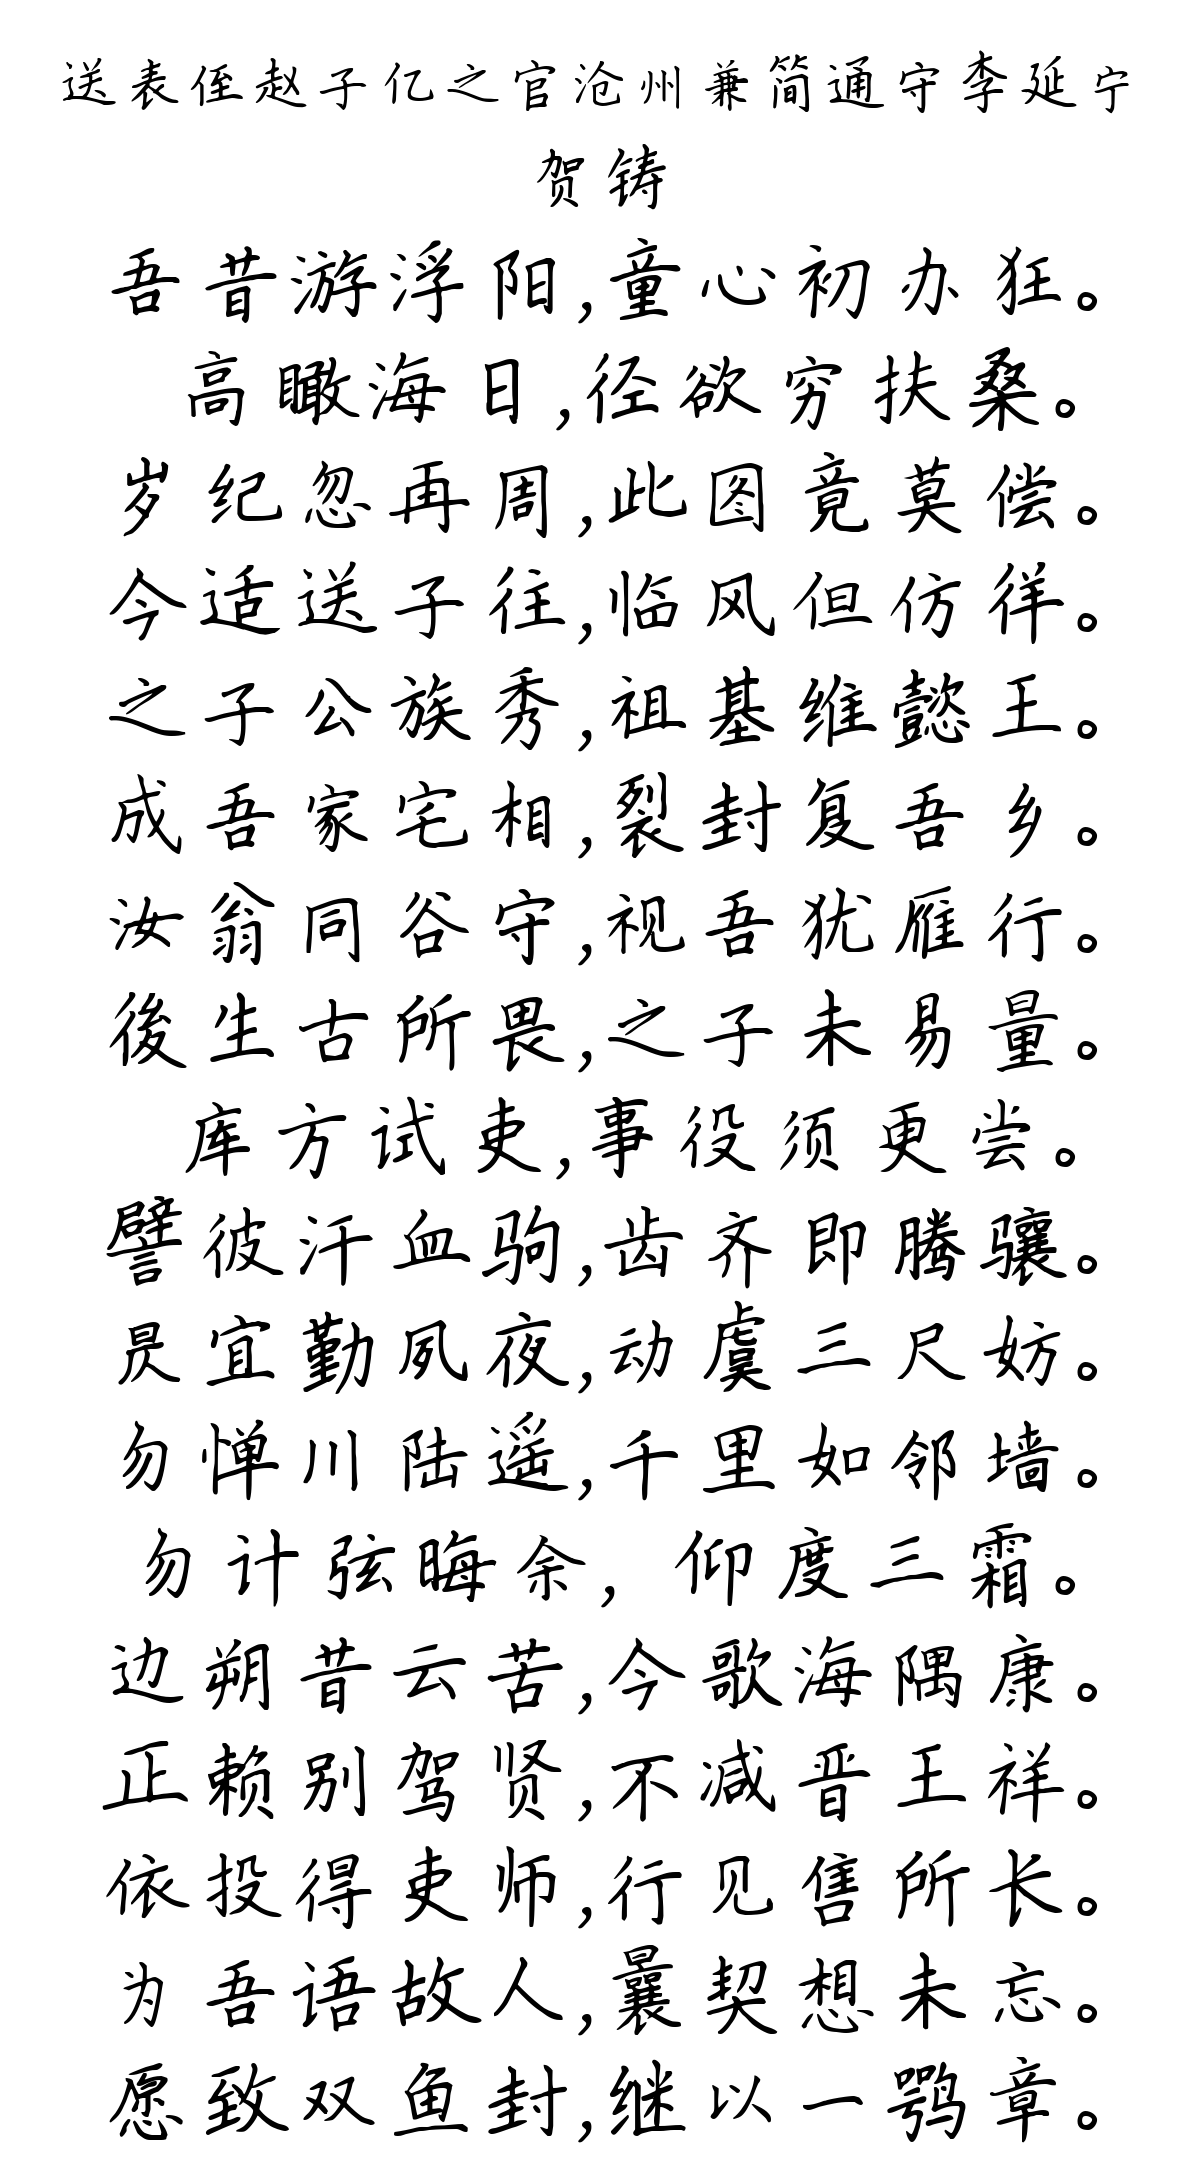 送表侄赵子亿之官沧州兼简通守李延宁
贺铸
吾昔游浮阳,童心初办狂。
高瞰海日,径欲穷扶桑。
岁纪忽再周,此图竟莫偿。
今适送子往,临风但仿徉。
之子公族秀,祖基维懿王。
成吾家宅相,裂封复吾乡。
汝翁同谷守,视吾犹雁行。
後生古所畏,之子未易量。
库方试吏,事役须更尝。
譬彼汗血驹,齿齐即腾骧。
昃宜勤夙夜,动虞三尺妨。
勿惮川陆遥,千里如邻墙。
勿计弦晦余,仰度三霜。
边朔昔云苦,今歌海隅康。
正赖别驾贤,不减晋王祥。
依投得吏师,行见售所长。
为吾语故人,曩契想未忘。
愿致双鱼封,继以一鹗章。